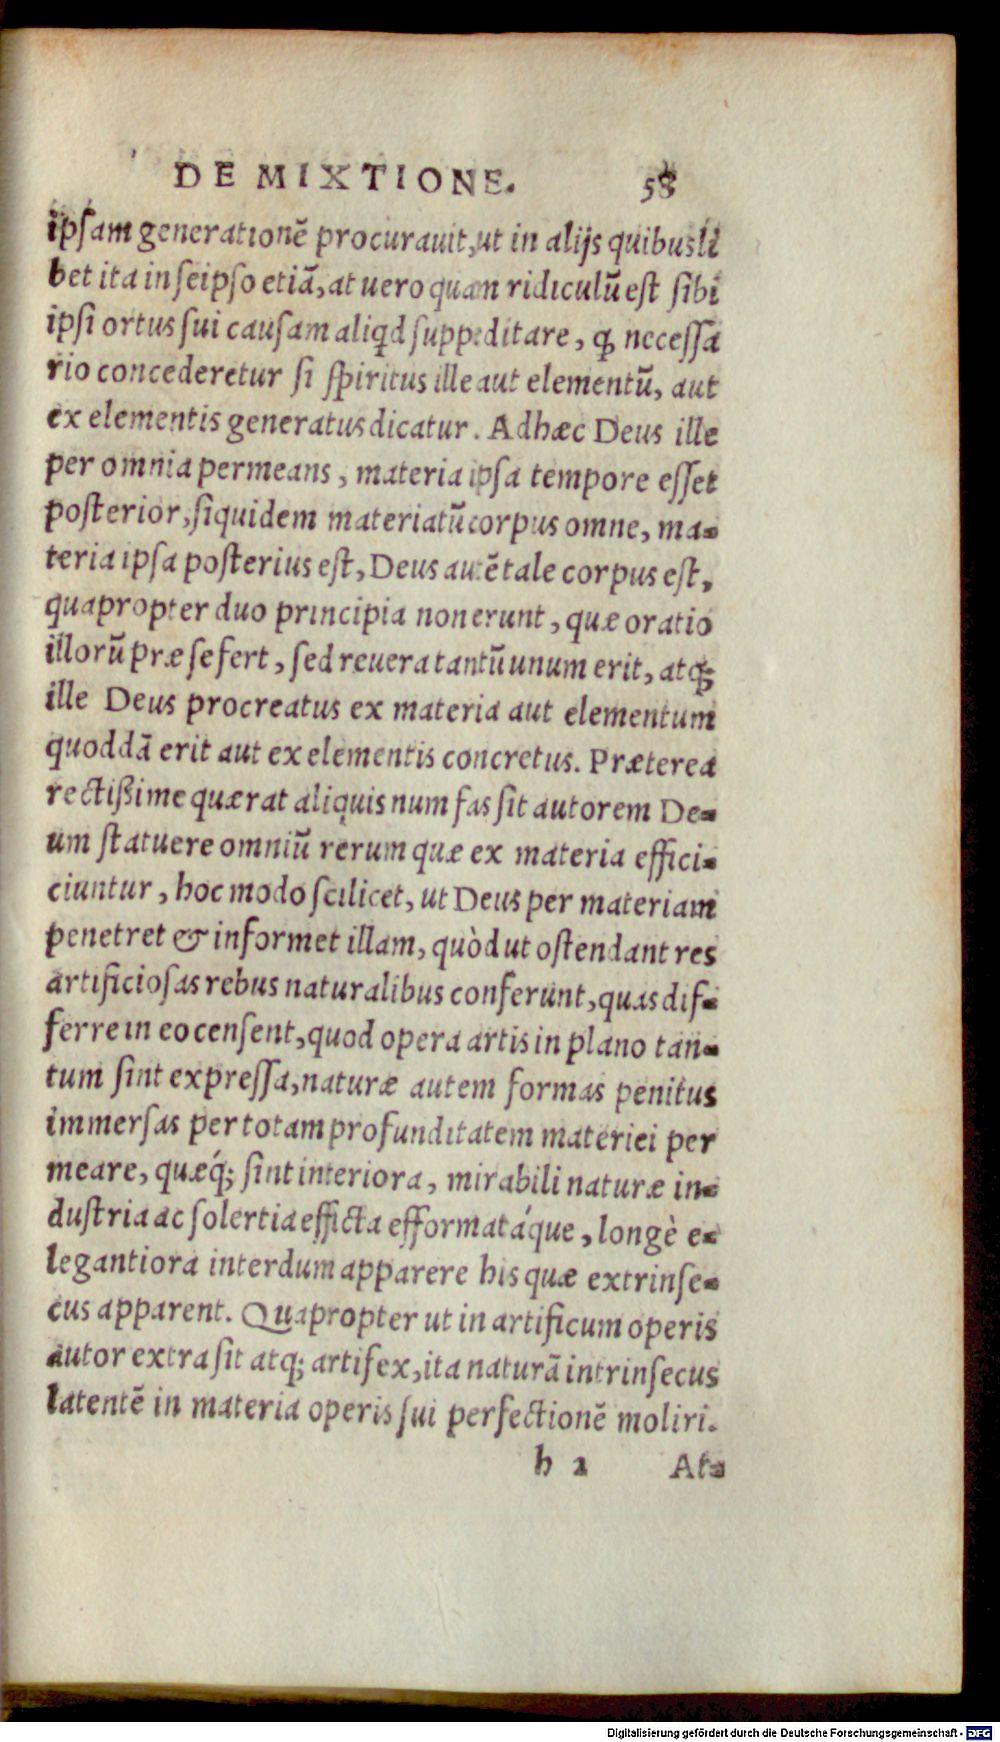 DE MIXTIONE. 58
ipsam generationē procurauit, ut in alijs quibusli
bet ita in seipso etiā, at uero quam ridiculū est sibi
ipsi ortus sui causam aliqd suppeditare, ꝙ necessa
rio concederetur si spiritus ille aut elementū, aut
ex elementis generatus dicatur. Adhæc Deus ille
per omnia permeans, materia ipsa tempore esset
posterior, siquidem materiatū corpus omne, ma-
teria ipsa posterius est, Deus autē tale corpus est,
quapropter duo principia non erunt, quæ oratio
illorū præ se fert, sed reuera tantū unum erit, atq;
ille Deus procreatus ex materia aut elementum
quoddā erit aut ex elementis concretus. Præterea
rectißime quærat aliquis num fas sit autorem De-
um statuere omniū rerum quæ ex materia effici-
ciuntur, hoc modo scilicet, ut Deus per materiam
penetret & informet illam, quòd ut ostendant res
artificiosas rebus naturalibus conferunt, quas dif-
ferre in eo censent, quod opera artis in plano tan-
tum sint expressa, naturæ autem formas penitus
immersas per totam profunditatem materiei per
meare, quæq́; sint interiora, mirabili naturæ in-
dustria ac solertia efficta efformatáque, longè e-
legantiora interdum apparere his quæ extrinse-
cus apparent. Quapropter ut in artificum operis
autor extra sit atq; artifex, ita naturā intrinsecus
latentē in materia operis sui perfectionē moliri.
h 2 At-
Digitalisierung gefördert durch die Deutsche Forschungsgemeinschaft - DFG